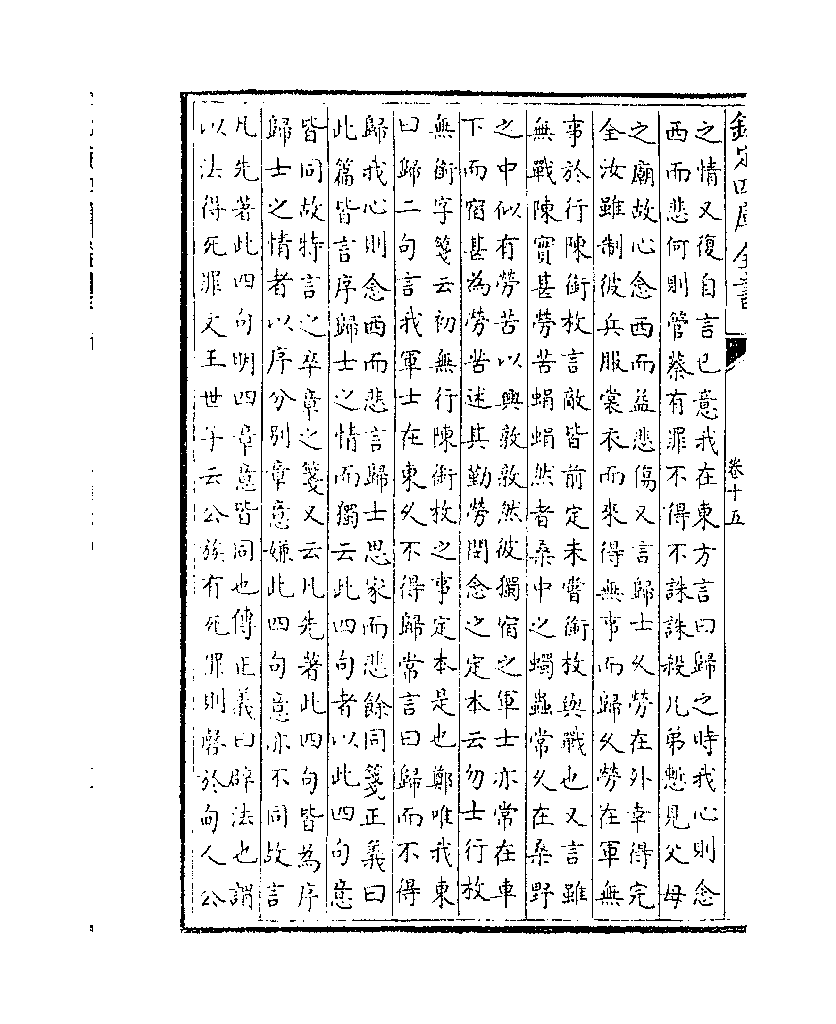 欽定四庫全書
卷十五
之情又復自言已意我在東方言曰歸之時我心則念
西而悲何則管蔡有罪不得不誅誅殺兄弟慙見父母
之廟故心念西而益悲傷又言歸士乆勞在外幸得完
全汝雖制彼兵服裳衣而來得無事而歸乆勞在軍無
事於行陳銜枚言敵皆前定未嘗銜枚與戰也又言雖
無戰陳實甚勞苦蜎蜎然者桑中之蠋蟲常乆在桑野
之中似有勞苦以興敦敦然彼獨宿之軍士亦常在車
下而宿甚為勞苦述其勤勞閔念之定本云勿士行枚
無銜字箋云初無行陳銜枚之事定本是也鄭唯我東
曰歸二句言我軍士在東乆不得歸常言曰歸而不得
歸我心則念西而悲言歸士思家而悲餘同箋正義曰
此篇皆言序歸士之情而獨云此四句者以此四句意
皆同故特言之卒章之箋又云凡先著此四句皆為序
歸士之情者以序分别章意嫌此四句意亦不同故言
凡先著此四句明四章意皆同也傳正義曰辟法也謂
以法得死罪文王世子云公族有死罪則磬於甸人公